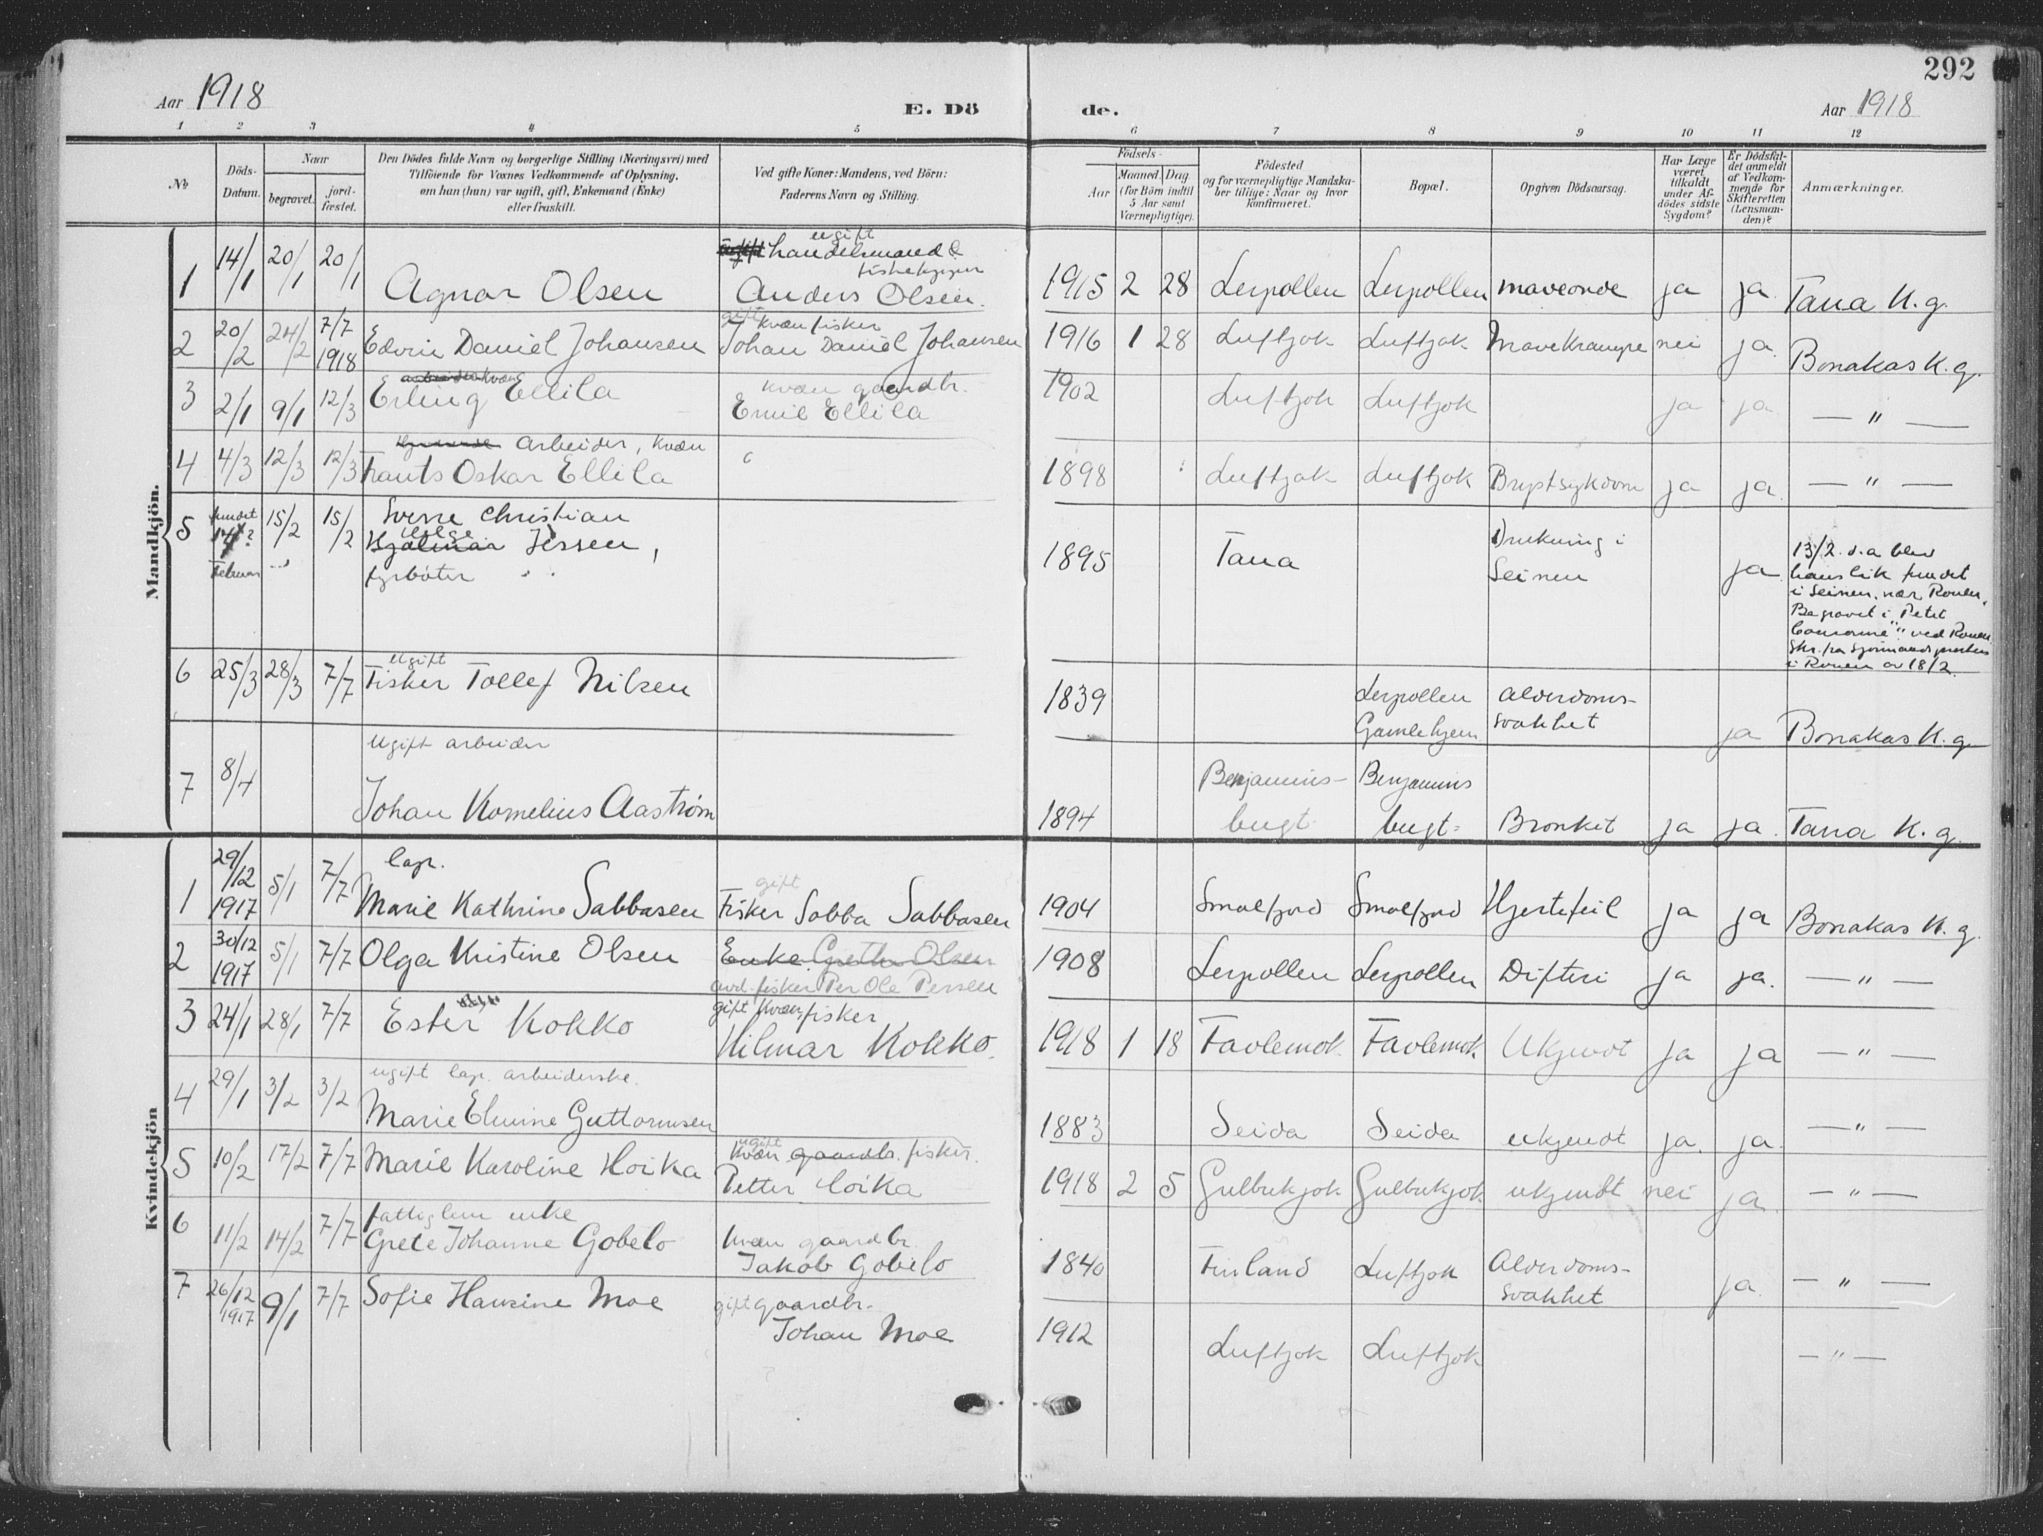 292
Aar 1918
E. Dö
de.
Aar 1918
1 2 3 4 5 6 7 8 9 10 11 12
№
Döds-Datum.
Naar
begravet.
jord-fæstet.
Den Dödes fulde Navn og borgerlige Stilling (Næringsvei) med
Tilföiende for Voxnes Vedkommende af Oplysning,
om han (hun) var ugift, gift, Enkemand (Enke)
eller fraskilt.
Ved gifte Koner: Mandens, ved Börn:
Faderens Navn og Stilling.
Födsels-
Aar
Maaned. Dag.
(for Börn indtil
5 Aar samt
Værnepligtige).
Födested
og for værnepligtige Mandska-
ber tillige: Naar og hvor
konfirmeret.
Bopæl.
Opgiven Dödsaarsag.
Har Læge
været
tilkaldt
under Af-
dödes sidste
Sygdom?
Er Dödsfal-
det anmeldt
af Vedkom-
mende for
Skifteretten
(Lensman-
den)?
Anmærkninger.
Mandkjön.
1 14/1 20/1 20/1 Agnar Olsen ugift handelsmand & fiskekjøper Anders Olsen. 1915 2 28 Leirpollen Leirpollen maveonde ja ja Tana K.g.
2 20/2 24/2 7/7 1918 Edvin Daniel Johansen gift kvæn fisker Johan Daniel Johansen 1916 1 28 Luftjok Luftjok Mavekrampe nei ja. Bonakas K.g.
3 2/1 9/1 12/3 Erling Ellila kvæn gaardbr. Emil Ellila 1902 Luftjok Luftjok ja ja — " —
4 4/3 12/3 12/3 arbeider, kvæn Frants Oskar Ellila 1898 Luftjok Luftjok Brystsykdom ja ja. — " —
5 fundet 14? Februar 15/2 15/2 Sverre Christian
Helge
Hjalmar Jessen,
fyrbøter
1895 Tana Drukning i
Seinen ja
13/2 d.a blev
hans lik fundet
i Seinen, nær Rouen.
Begravet i "Petit
Couronne" ved Rouen
Skr. fra Sjømandspresten
i Rouen av 18/2
6 25/3 28/3 7/7 ugift Fisker Tollef Nilsen 1839 Leirpollen
Gamlehjem Alderdoms-
svakhet ja Bonakas K.g.
7 8/4 ugift arbeider
Johan Kornelius Aastrøm 1894 Benjamins-
bugt Benjamins
bugt Bronkit ja ja. Tana K.g.
Kvindekjön
1 29/12 1917 5/1 7/7 lap. Marie Kathrine Sabbasen gift Fisker Sabba Sabbasen 1904 Smalfjord Smalfjord Hjertefeil ja ja Bonakas K.g.
2 30/12 1917 5/1 7/7 Olga Kristine Olsen Enke Grethe Olsen
avd. fisker Per Ole Persen 1908 Leirpollen Leirpollen Difteri ja ja. — " —
3 24/1 28/1 7/7 Ester Kokko gift kvæn, fisker
Hilmar Kokko. 1918 1 18 Favlemok. Favlemok. Ukjendt ja ja — " —
4 29/1 3/2 3/2 ugift lap. arbeiderske.
Marie Elmine Guttormsen 1883 Seida Seida ukjendt ja. ja. — " —
5 10/2 17/2 7/7 Marie Karoline Hoika ugift
kvæn gaardbr. fisker.
Petter Hoika 1918 2 5 Gulbukjok Gulbukjok ukjendt nei ja. — " —
6 11/2 14/2 7/7 fattiglem enke
Grete Johanne Gobelo kvæn gaardbr.
Jakob Gobelo 1840 Finland Luftjok Alderdoms-
svakhet ja. — " —
7 26/12 1917 9/1 7/7 Sofie Hansine Moe gift gaardbr.
Johan Moe 1912 Luftjok Luftjok — " —